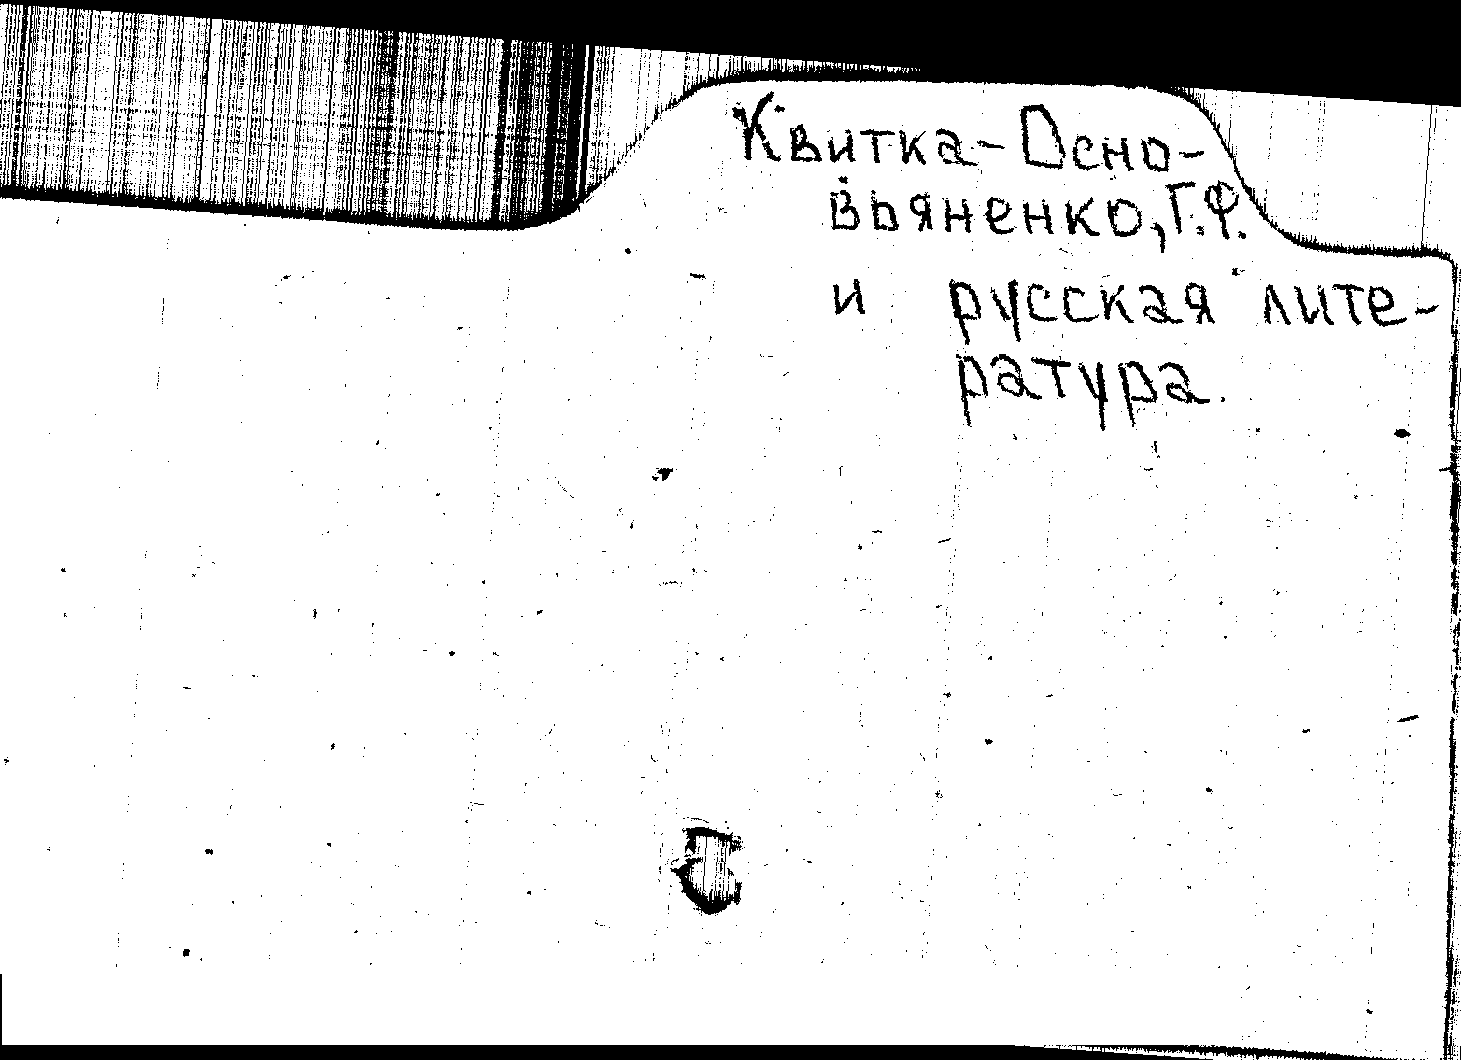 Квитка-Осно-
вьяненко, Г.Ф.
и русская лите-
ратура.